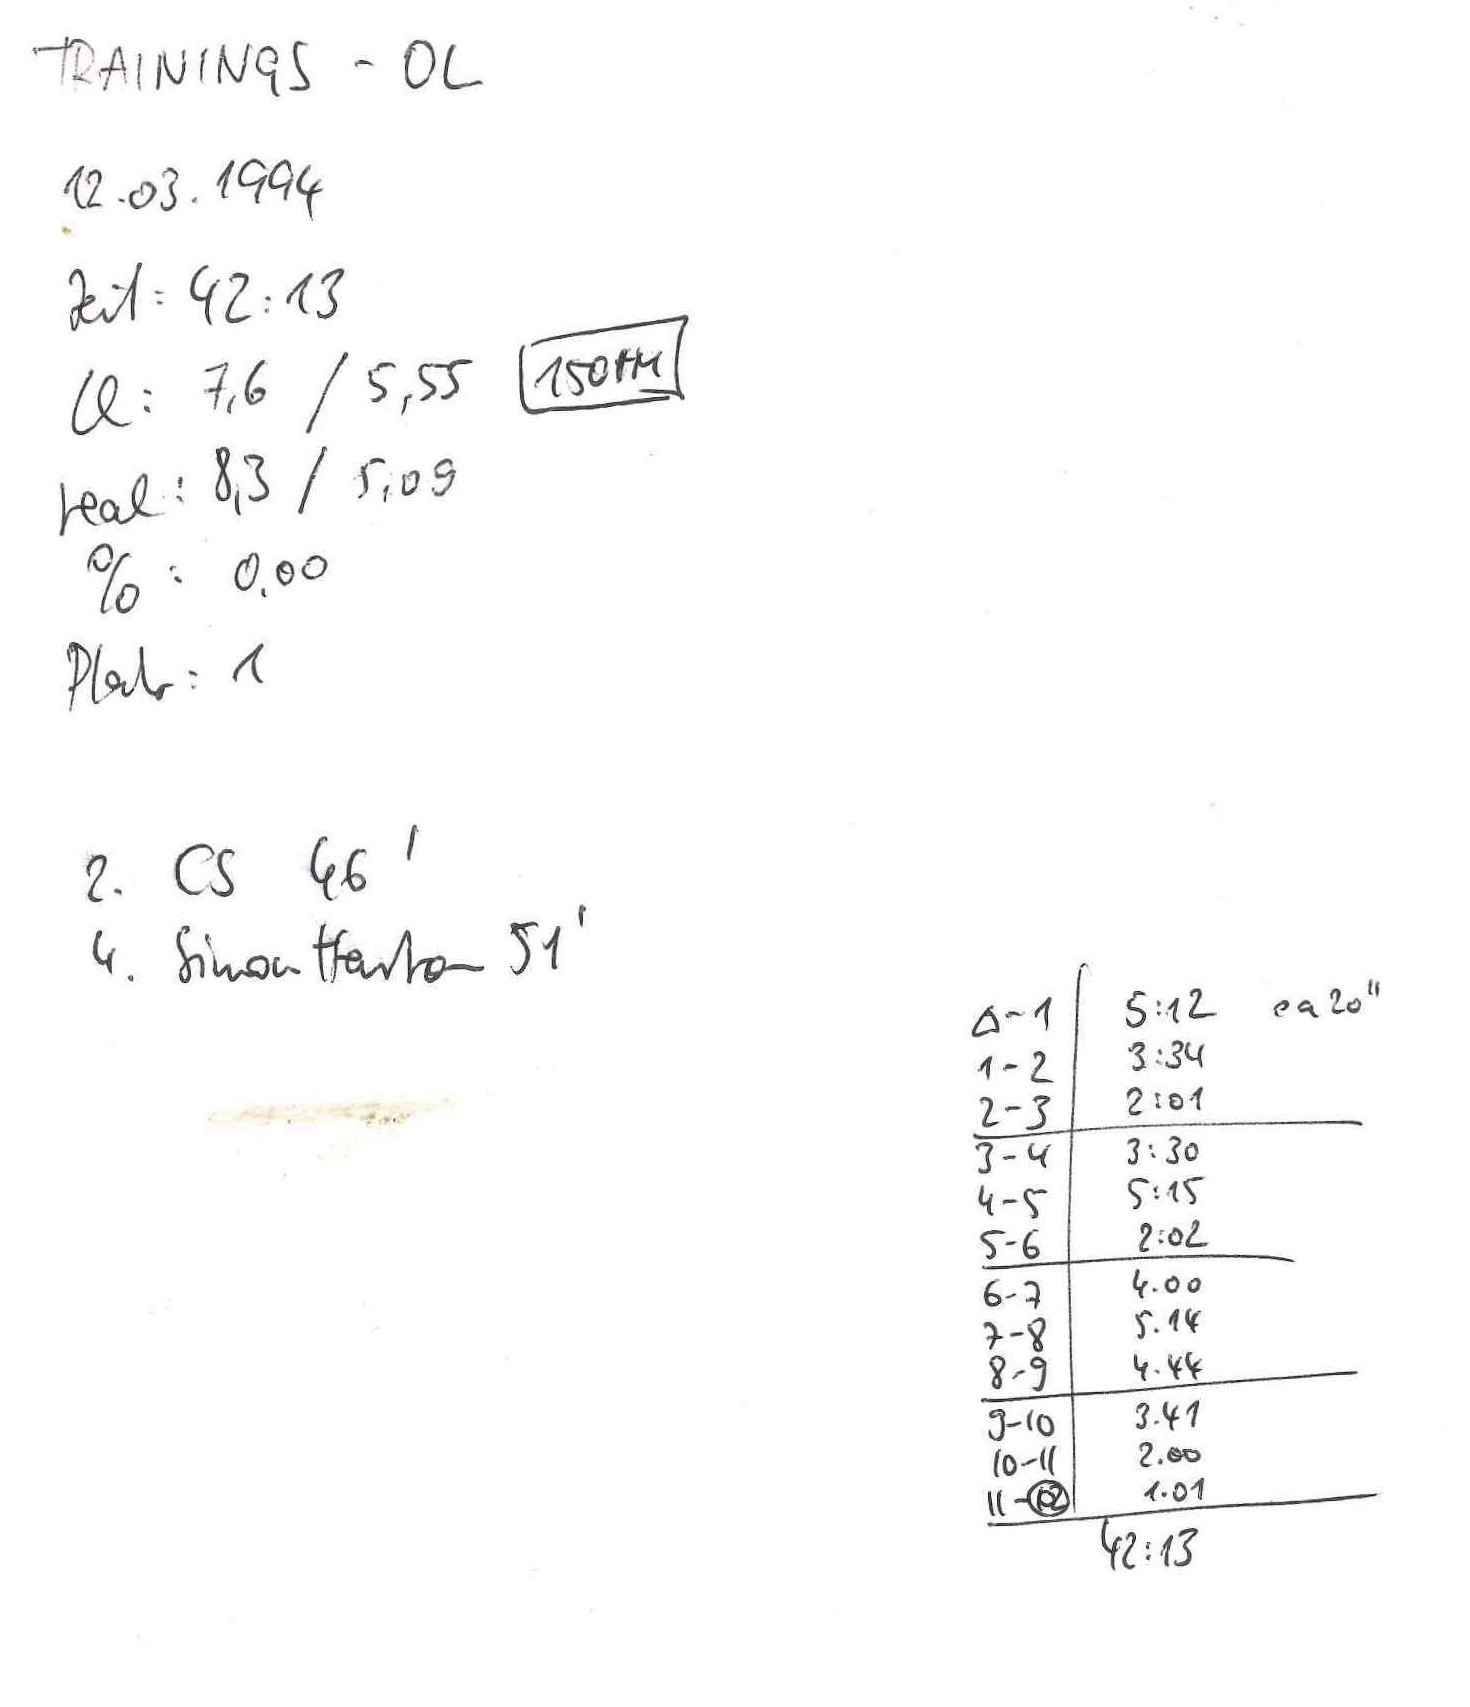 TRAININGS - OL
12.03.1994
Zeit: 42:13
LL: 7,6 / 5,55 150HM
real: 8,3 / 5,09
%: 0.00
Platz: 1
2. CS 46'
4. Simon 51'
Δ-1 5:12 ca 20"
1-2 3:34
2-3 2:01
3-4 3:30
4-5 5:15
5-6 2:02
6-7 4.00
7-8 5.14
8-9 4.44
9-10 3.41
10-11 2.00
11-12 1.01
42:13